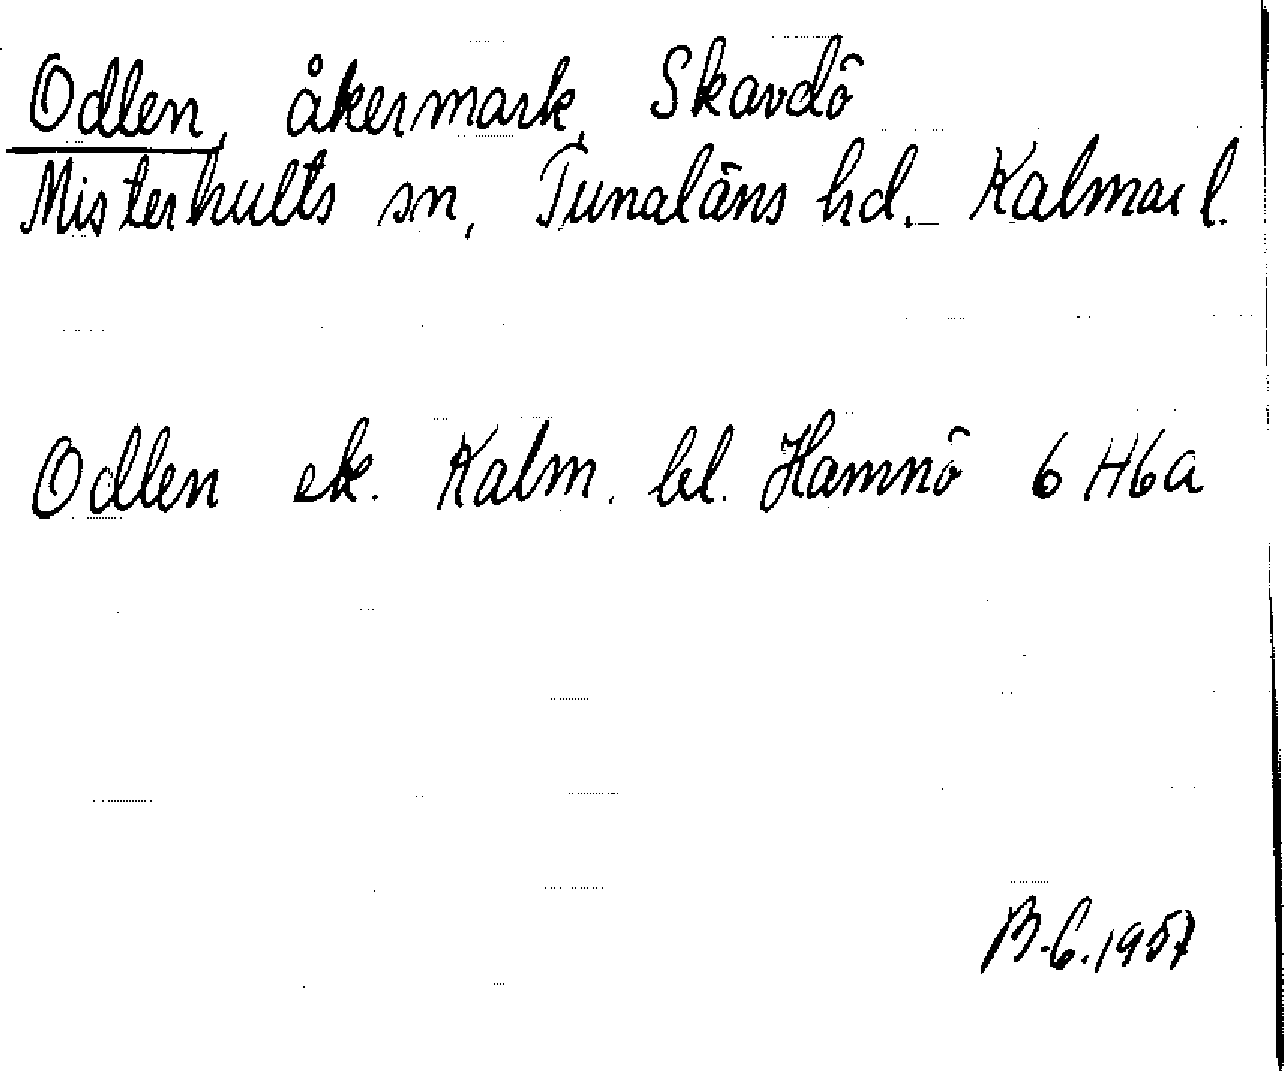 Odlen, åkermark, Skavdö
Misterhults sn, Tunaläns hd. Kalmar l.
Odlen ek. Kalm. bl. Hamnö 6 H6a
B.G. 1957